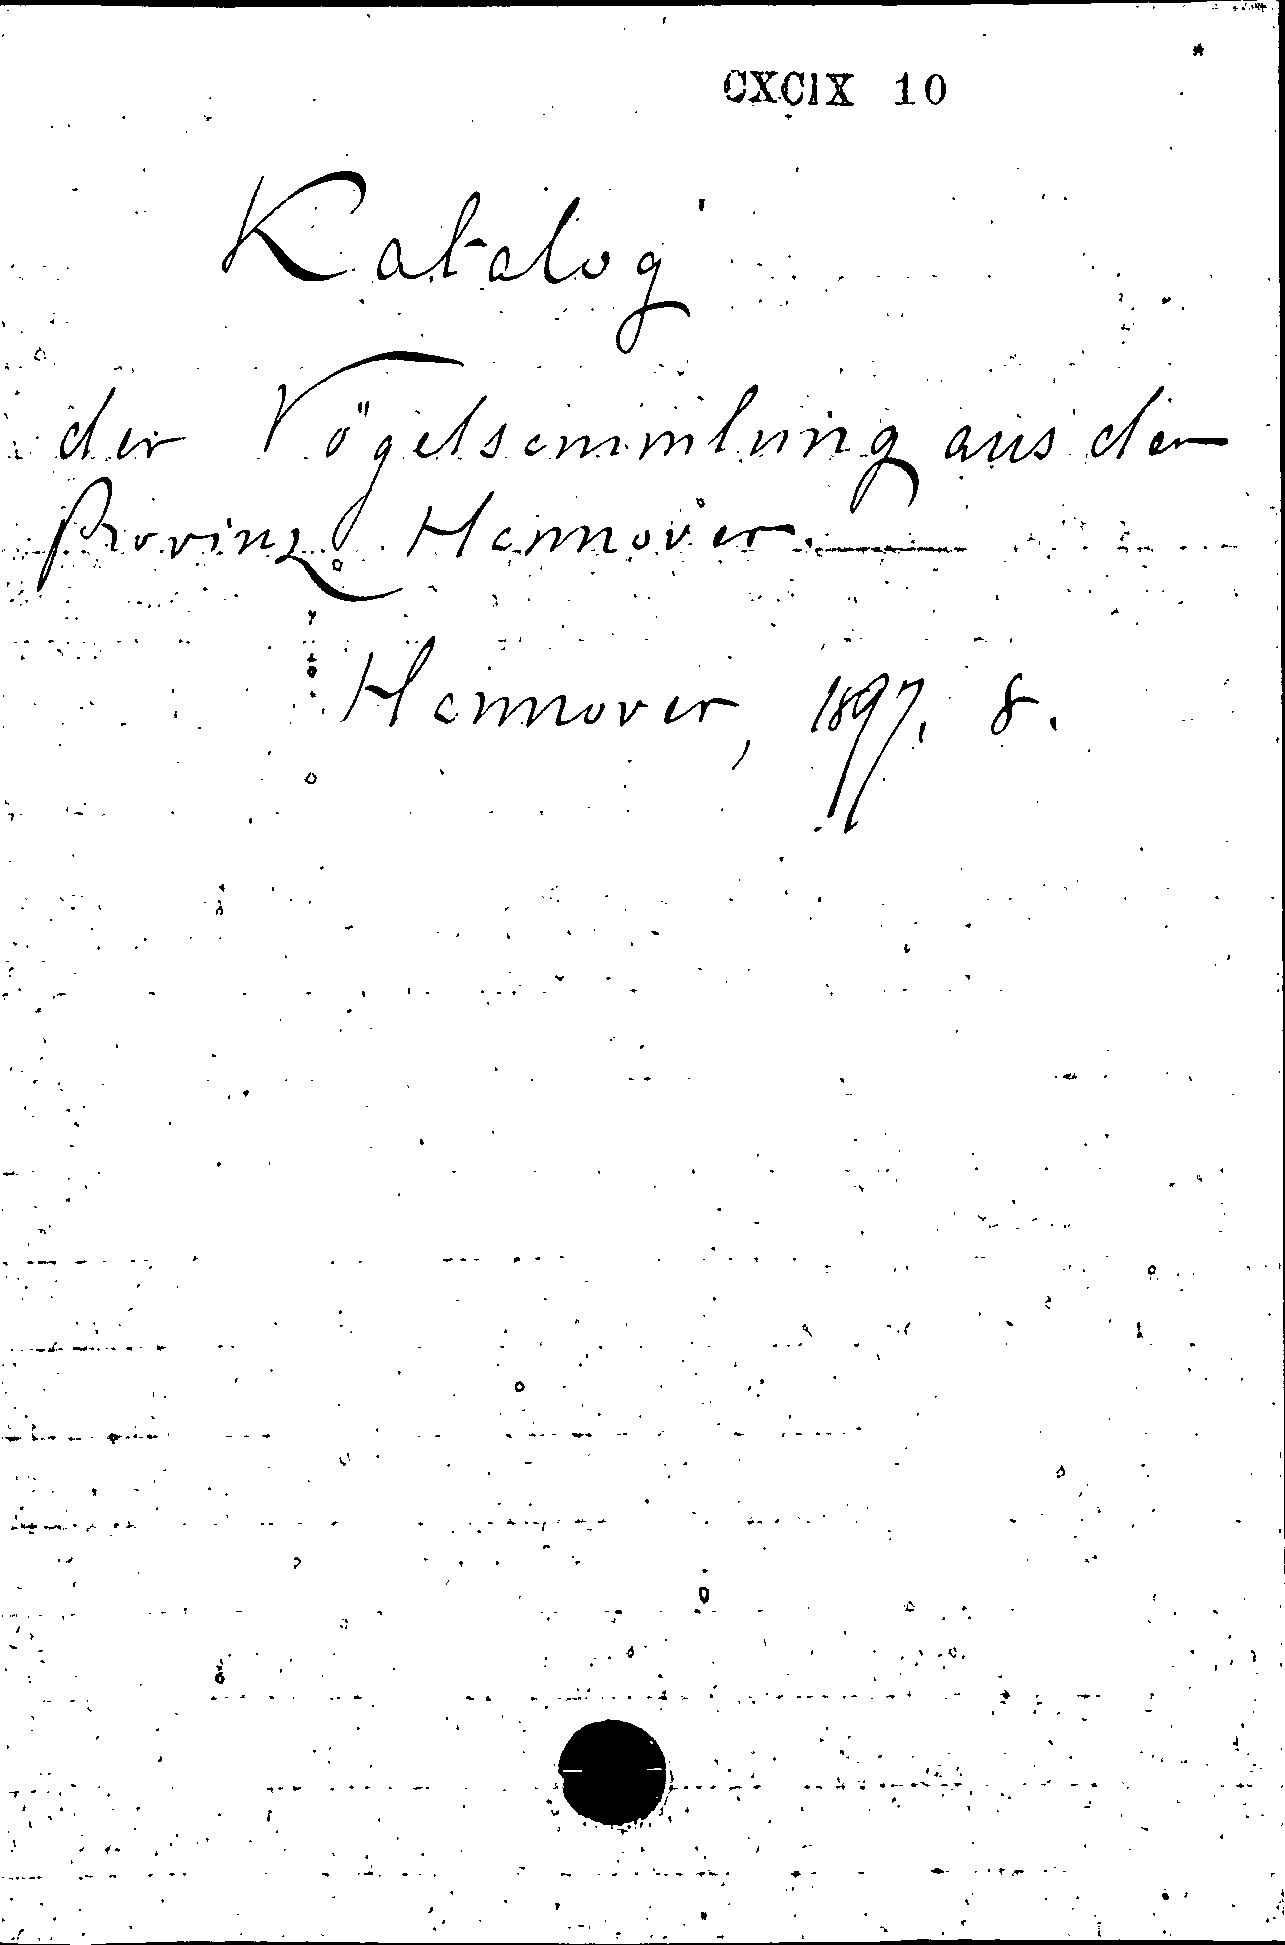 CXCIX 10
Katalog
der Vögelsammlung aus der
Provinz Hannover.
Hannover, 1897. 8.